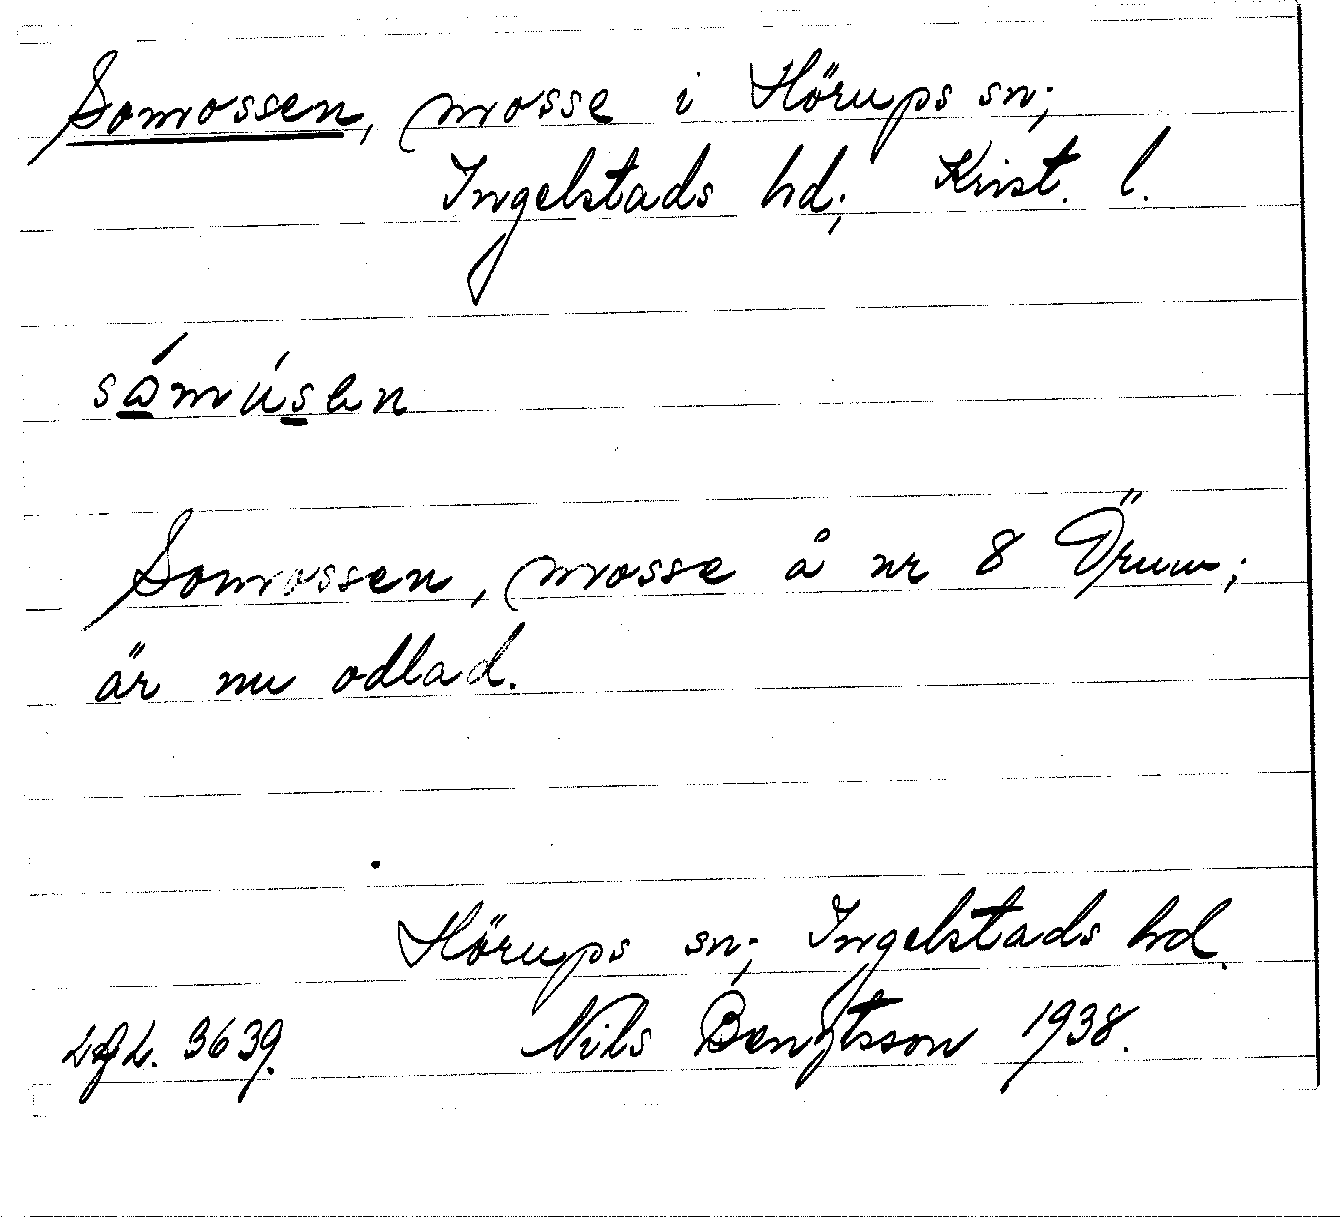 Somossen, mosse i Hörups sn;
Ingelstads hd; Krist. l.
sámúsen
Somossen, mosse å nr 8 Örum;
är nu odlad.
Hörups sn; Ingelstads hd.
LGL. 3639. Nils Bengtsson 1938.